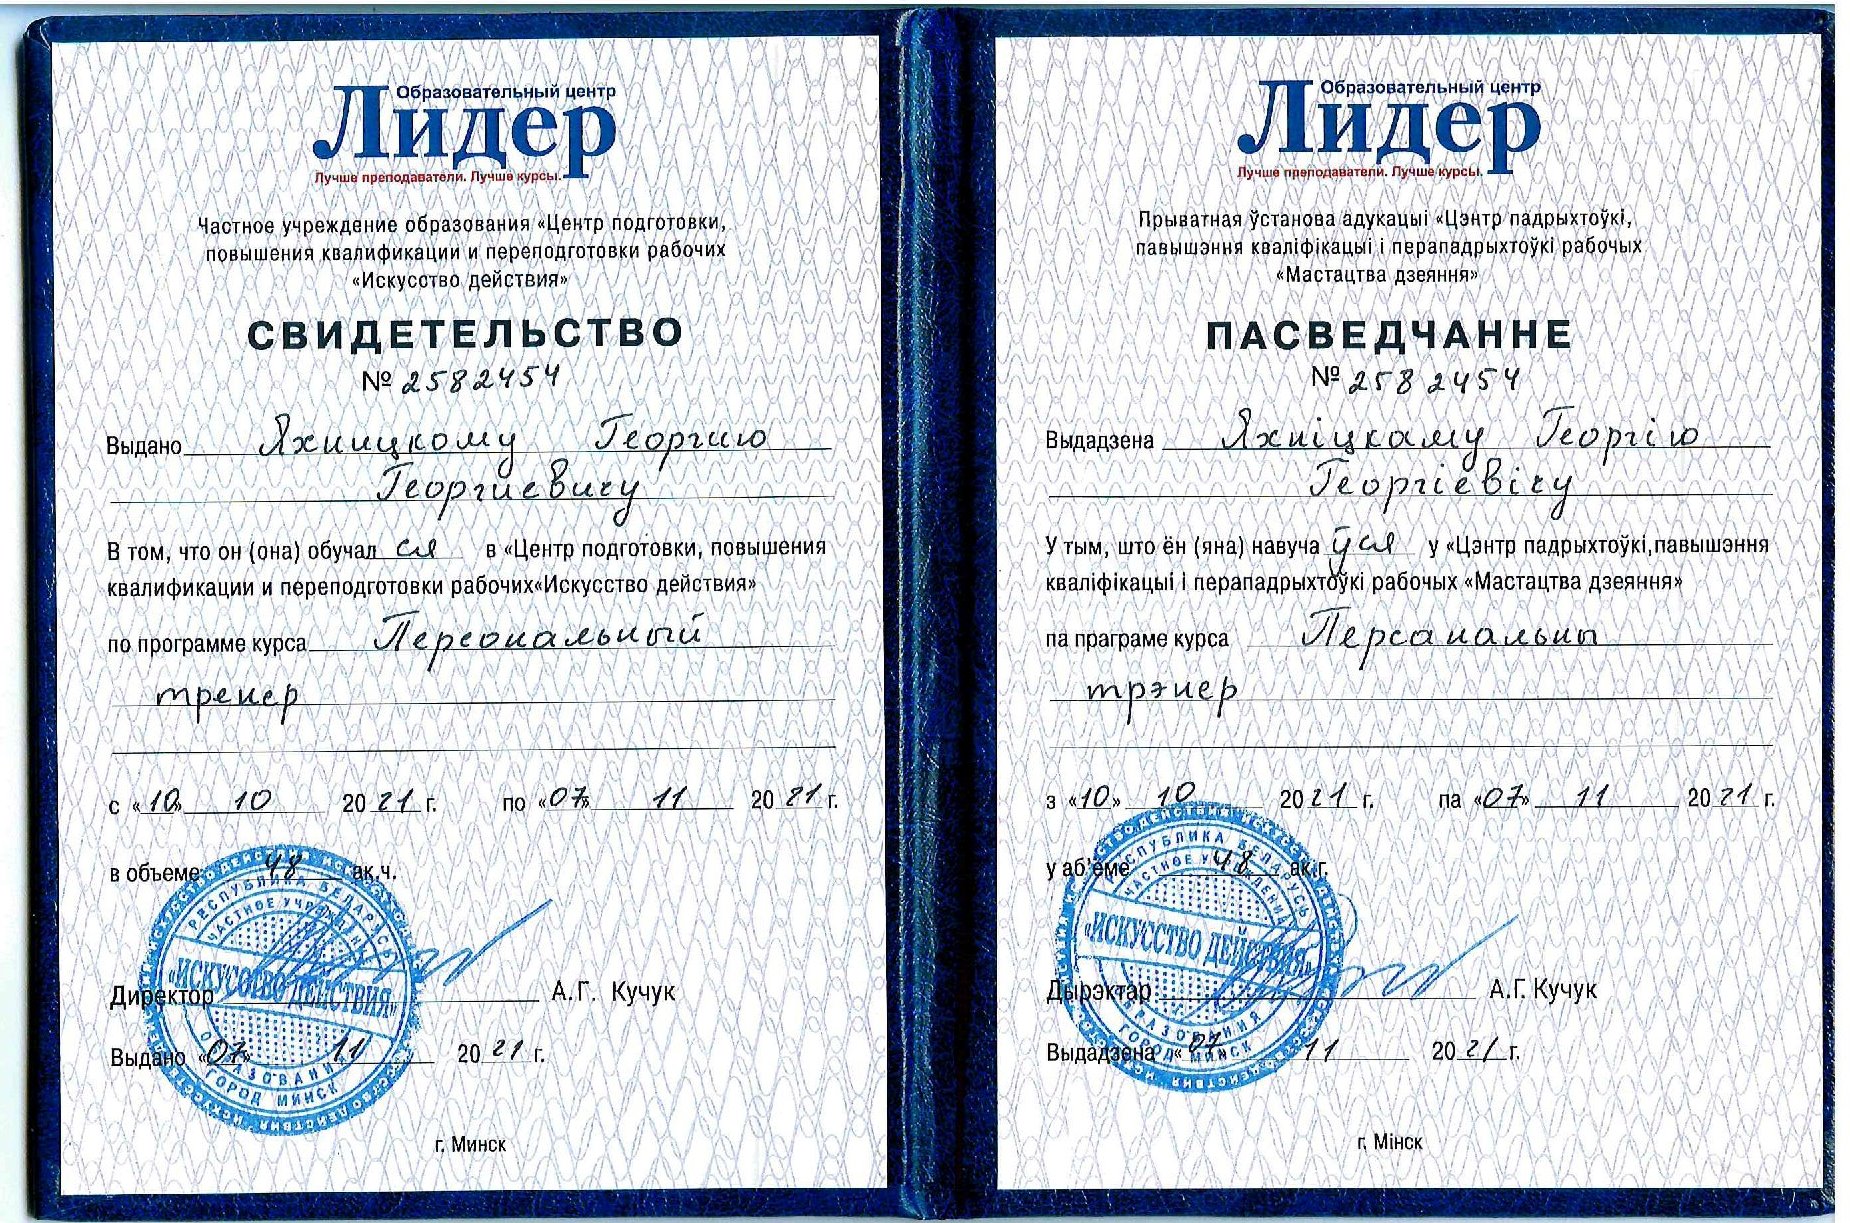 Образовательный центр
Лидер
Лучше преподаватели. Лучше курсы.
Частное учреждение образования «Центр подготовки,
повышения квалификации и переподготовки рабочих
«Искусство действия»
СВИДЕТЕЛЬСТВО
№ 2582454
Выдано Яхницкому Георгию
Георгиевичу
В том, что он (она) обучал ся в «Центр подготовки, повышения
квалификации и переподготовки рабочих«Искусство действия»
по программе курса Персональный
тренер
с «10» 10 20 21 г. по «07» 11 20 21 г.
в объеме 48 ак.ч.
Директор А.Г. Кучук
Выдано «07» 11 20 21 г.
г. Минск
РЕСПУБЛИКА БЕЛАРУСЬ
ЧАСТНОЕ УЧРЕЖДЕНИЕ
«ИСКУССТВО ДЕЙСТВИЯ»
ОБРАЗОВАНИЯ
ГОРОД МИНСК
Образовательный центр
Лидер
Лучше преподаватели. Лучше курсы.
Прыватная ўстанова адукацыі «Цэнтр падрыхтоўкі,
павышэння кваліфікацыі і перападрыхтоўкі рабочых
«Мастацтва дзеяння»
ПАСВЕДЧАННЕ
№ 2582454
Выдадзена Яхніцкаму Георгію
Георгіевічу
У тым, што ён (яна) навуча ўся у «Цэнтр падрыхтоўкі,павышэння
кваліфікацыі і перападрыхтоўкі рабочых «Мастацтва дзеяння»
па праграме курса Персанальны
трэнер
з «10» 10 20 21 г. па «07» 11 20 21 г.
у аб'ёме 48 ак.г.
Дырэктар А.Г. Кучук
Выдадзена «07 11 20 21 г.
г. Мінск
РЕСПУБЛИКА БЕЛАРУСЬ
ЧАСТНОЕ УЧРЕЖДЕНИЕ
«ИСКУССТВО ДЕЙСТВИЯ»
ОБРАЗОВАНИЯ
ГОРОД МИНСК